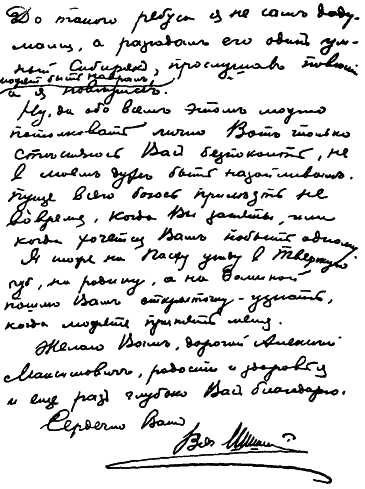 До такого ребуса я не самъ доду-
мался, а разгадалъ его одинъ ум-
ный Сибирякъ, прослушавъ
можетъ быть навралъ,
а я
Ну, да обо всемъ этомъ можно
потолковать лично Вотъ только
Васъ безпокоить, не
въ моемъ духе быть назойливымъ.
Пуще всего боюсь прилезть не
во время, когда Вы заняты, или
когда хочется Вамъ побыть одному
Я скоро на Пасху уеду в Тверскую
губ, на родину, а на Фоминой
пошлю Вамъ открыточку - узнать,
когда можете принять меня.
Желаю Вамъ, дорогой Алексей
Максимовичъ, радости и здоровья
и еще разъ глубоко Васъ благодарю.
Сердечно Вашъ
Вяч Шишков